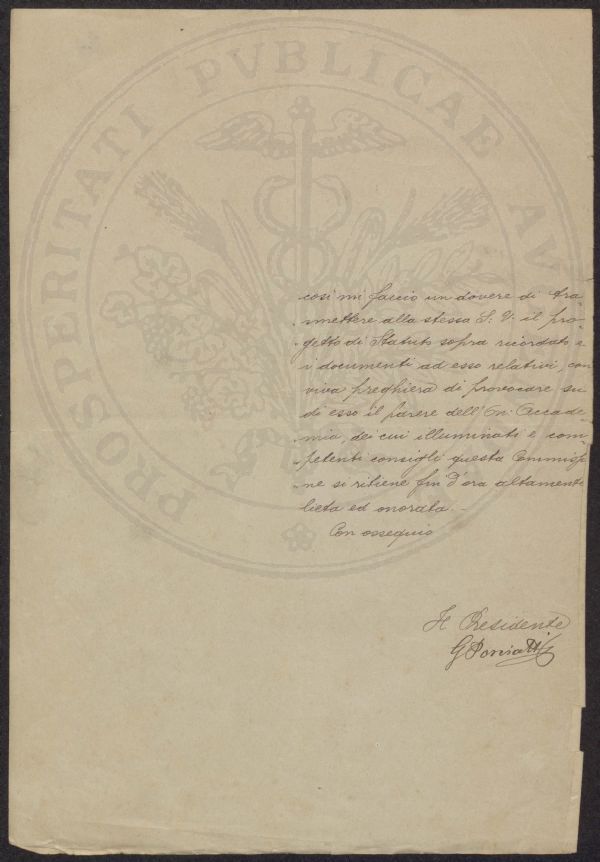 PROSPERITATI PVBLICAE AV
così mi faccio un dovere di tra-
-smettere alla stessa S. V. il pro-
-getto di Statuto sopra ricordato e
i documenti ad esso relativi, con
viva preghiera di provocare su
di esso il parere dell'On. Accade-
-mia, dei cui illuminati e com-
-petenti consigli questa Commissio-
-ne si ritiene fin d'ora altamente
lieta ed onorata. -
Con ossequio
Il Presidente